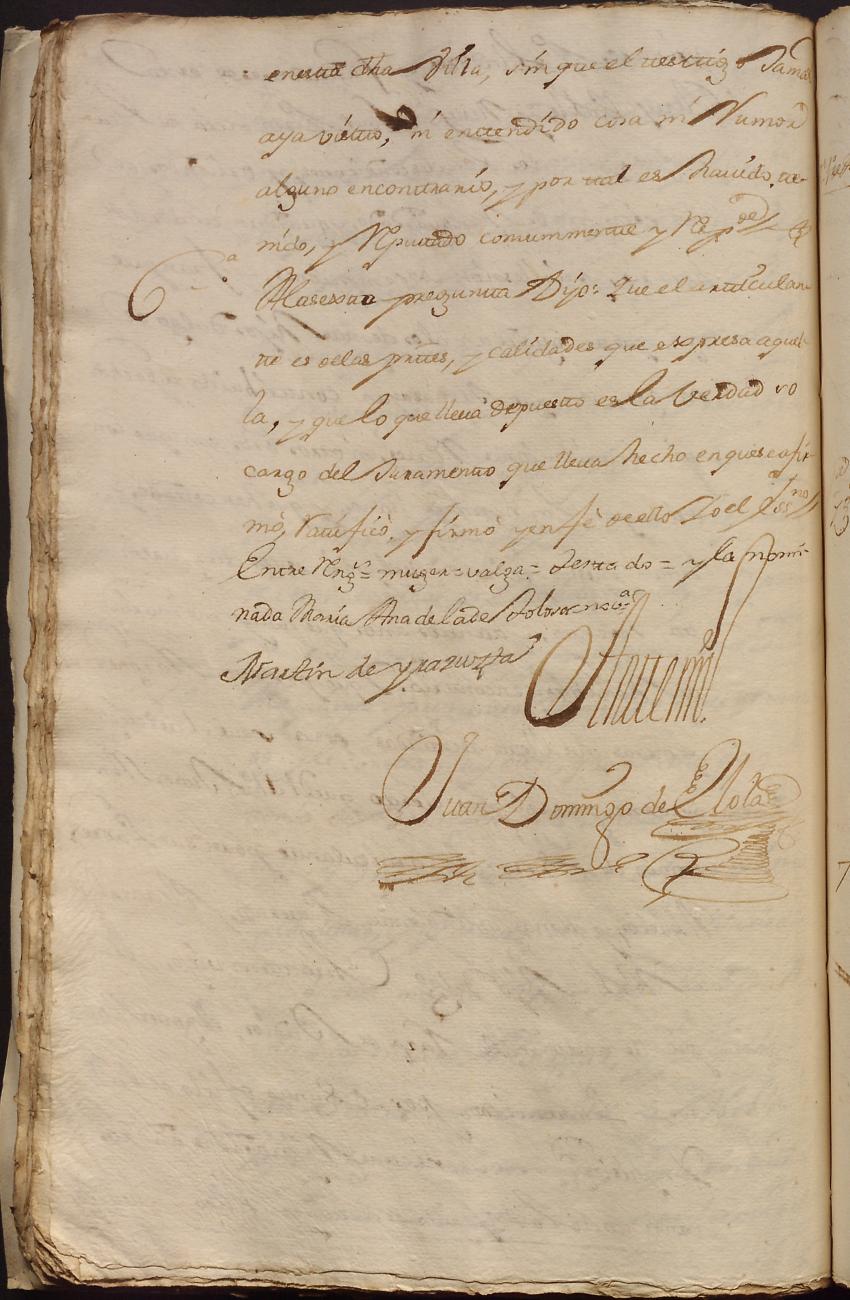 en esta dha Villa, sin que el testigo Jamas
aya visto, ni entendido cosa ni Rumor
alguno encontrario, y por tal es havido, te-
nido, y Reputado comunmente y Rede
6.a
A la sexta pregunta Dijo: Que el articulan-
te es de las prttes, y calidades que expresa aquel-
la, y que lo que lleva depuesto es la Verdad so
cargo del Juramento que lleva hecho en que se afir-
mó, Ratificó, y firmó y en fè de ello Yo el Essno
Entre Rengs = muger = valga = Testado = y la nomi-
nada Maria Ana de la de Tolosa = no va
Martin de yparraa
Ante mi
Juan Domingo de Elola